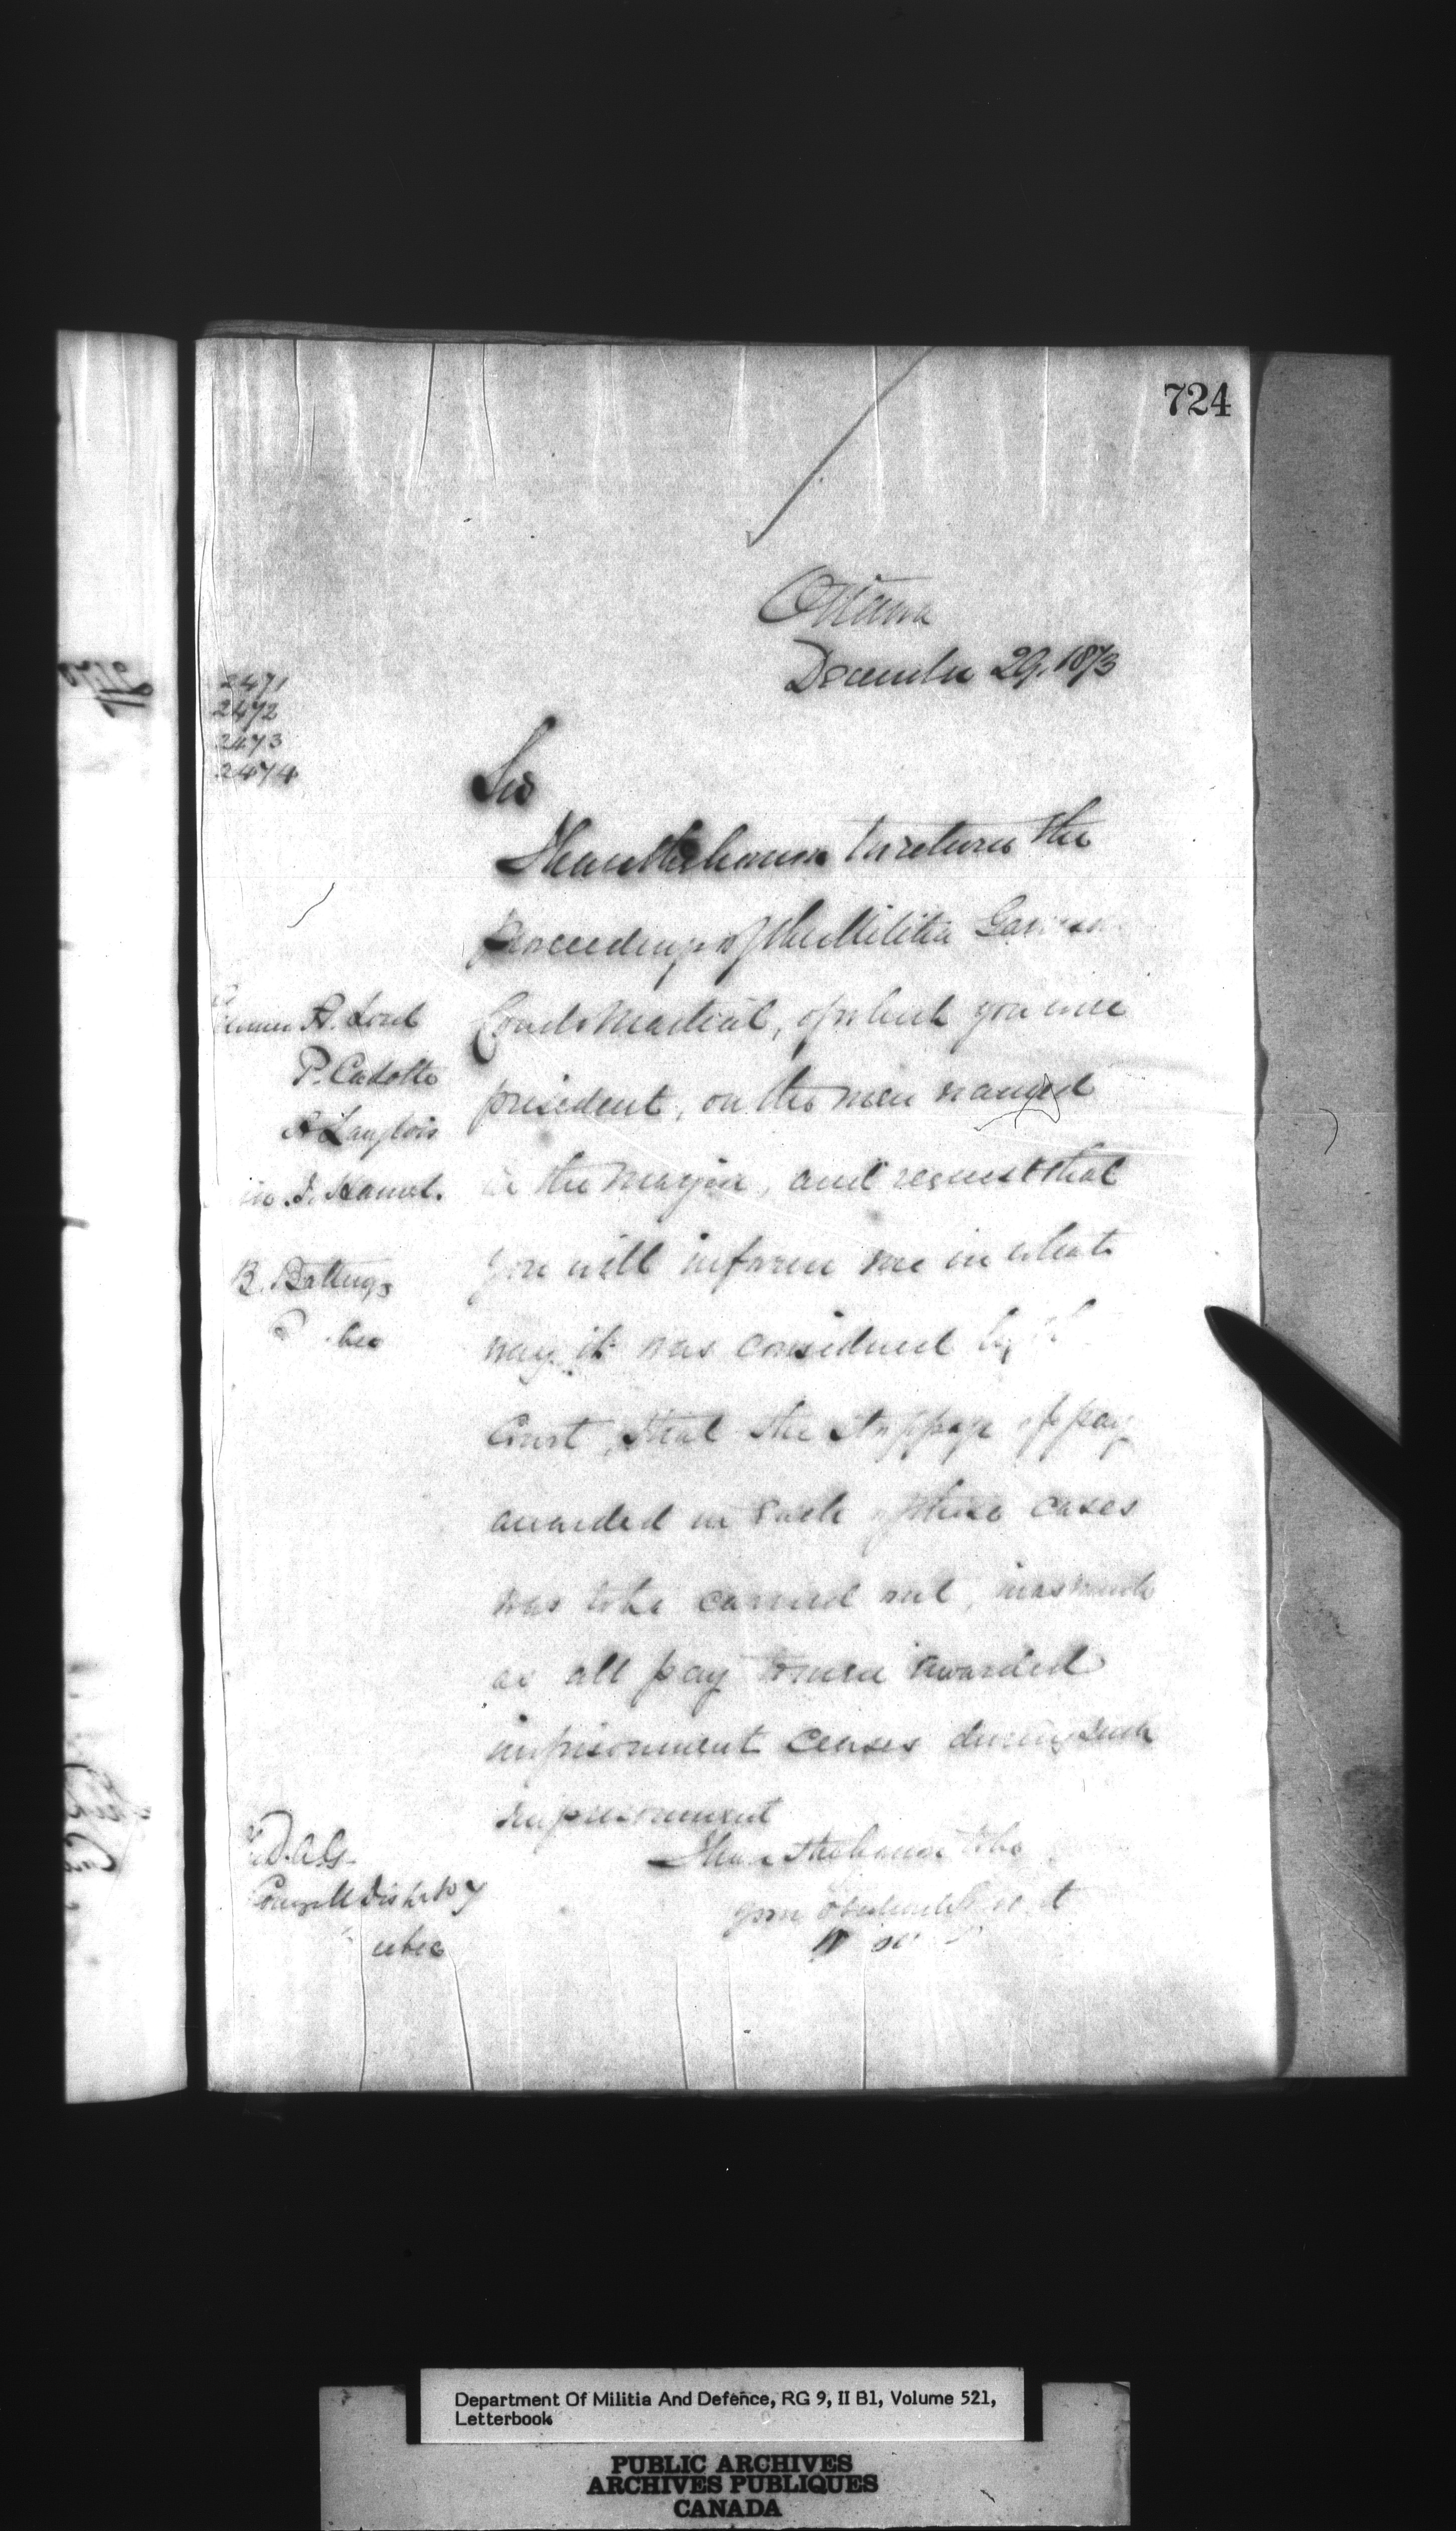 724
Ottawa
December 29. 1873
2471
2472
2473
2474
Sir
I have the honour to return the
proceedings of the Militia Garrison
Court Martial, of which you were
president, on the men named
in the margin, and request that
you will inform me in what
way it was considered by the
Court, that the stoppage of pay
awarded in each of these cases
was to be carried out, inasmuch
as all pay to men awarded
imprisonment ceases during such
imprisonment
I have the honour to be
your obedient
A. Lord
P. Cadotte
Langlois
J. Hamel.
B. Battery
D.A.G.
Comg M District 7
Department Of Militia And Defence, RG 9, II B1, Volume 521,
Letterbook
PUBLIC ARCHIVES
ARCHIVES PUBLIQUES
CANADA